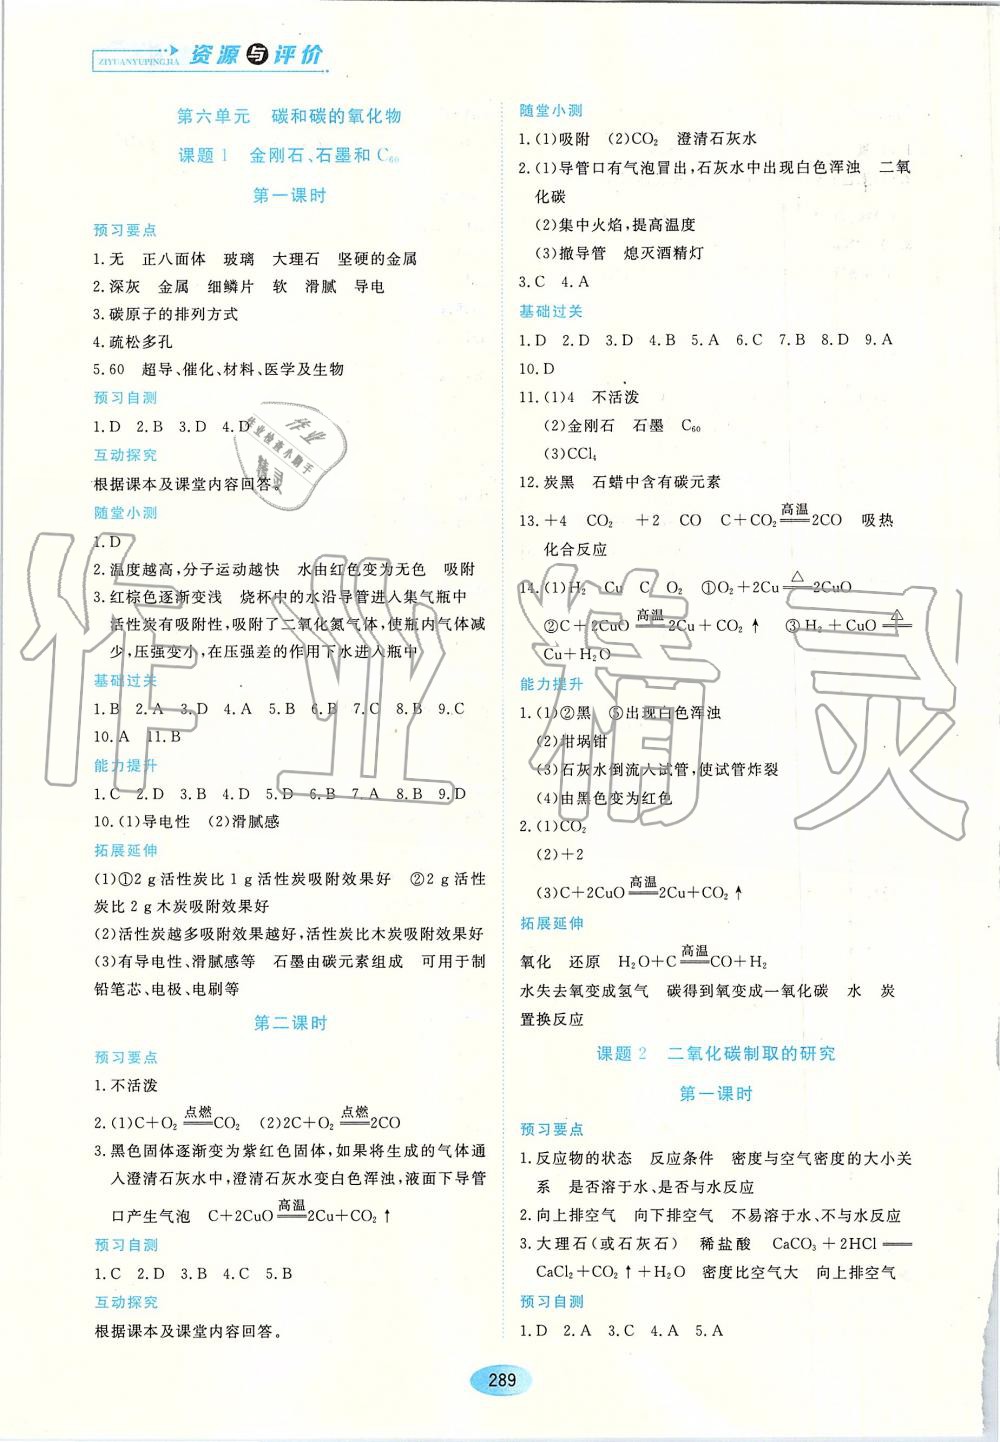 ZIYUANYUPINGJIA 资源与评价
第六单元　碳和碳的氧化物
课题1　金刚石、石墨和C₆₀
第一课时
预习要点
1.无　正八面体　玻璃　大理石　坚硬的金属
2.深灰　金属　细鳞片　软　滑腻　导电
3.碳原子的排列方式
4.疏松多孔
5.60　超导、催化、材料、医学及生物
预习自测
1.D　2.B　3.D　4.D
互动探究
根据课本及课堂内容回答。
随堂小测
1.D
2.温度越高,分子运动越快　水由红色变为无色　吸附
3.红棕色逐渐变浅　烧杯中的水沿导管进入集气瓶中
活性炭有吸附性,吸附了二氧化氮气体,使瓶内气体减
少,压强变小,在压强差的作用下水进入瓶中
基础过关
1.B　2.A　3.D　4.A　5.B　6.B　7.C　8.B　9.C
10.A　11.B
能力提升
1.C　2.D　3.B　4.D　5.D　6.B　7.A　8.B　9.D
10.(1)导电性　(2)滑腻感
拓展延伸
(1)①2 g活性炭比1 g活性炭吸附效果好　②2 g活
性炭比2 g木炭吸附效果好
(2)活性炭越多吸附效果越好,活性炭比木炭吸附效果好
(3)有导电性、滑腻感等　石墨由碳元素组成　可用于制
铅笔芯、电极、电刷等
第二课时
预习要点
1.不活泼
2.(1)C+O₂ 点燃══ CO₂　(2)2C+O₂ 点燃══ 2CO
3.黑色固体逐渐变为紫红色固体,如果将生成的气体通
入澄清石灰水中,澄清石灰水变白色浑浊,液面下导管
口产生气泡　C+2CuO 高温══ 2Cu+CO₂↑
预习自测
1.C　2.D　3.B　4.C　5.B
互动探究
根据课本及课堂内容回答。
随堂小测
1.(1)吸附　(2)CO₂　澄清石灰水
2.(1)导管口有气泡冒出,石灰水中出现白色浑浊　二氧
化碳
(2)集中火焰,提高温度
(3)撤导管　熄灭酒精灯
3.C　4.A
基础过关
1.D　2.D　3.D　4.B　5.A　6.C　7.B　8.D　9.A
10.D
11.(1)4　不活泼
(2)金刚石　石墨　C₆₀
(3)CCl₄
12.炭黑　石蜡中含有碳元素
13.+4　CO₂　+2　CO　C+CO₂ 高温══ 2CO　吸热
化合反应
14.(1)H₂　Cu　C　O₂　①O₂+2Cu △══ 2CuO
②C+2CuO 高温══ 2Cu+CO₂↑　③H₂+CuO △══
Cu+H₂O
能力提升
1.(1)②黑　⑤出现白色浑浊
(2)坩埚钳
(3)石灰水倒流入试管,使试管炸裂
(4)由黑色变为红色
2.(1)CO₂
(2)+2
(3)C+2CuO 高温══ 2Cu+CO₂↑
拓展延伸
氧化　还原　H₂O+C 高温══ CO+H₂
水失去氧变成氢气　碳得到氧变成一氧化碳　水　炭
置换反应
课题2　二氧化碳制取的研究
第一课时
预习要点
1.反应物的状态　反应条件　密度与空气密度的大小关
系　是否溶于水、是否与水反应
2.向上排空气　向下排空气　不易溶于水、不与水反应
3.大理石(或石灰石)　稀盐酸　CaCO₃+2HCl══
CaCl₂+CO₂↑+H₂O　密度比空气大　向上排空气
预习自测
1.D　2.A　3.C　4.A　5.A
289
作业精灵
作业
作业检查小助手
精灵